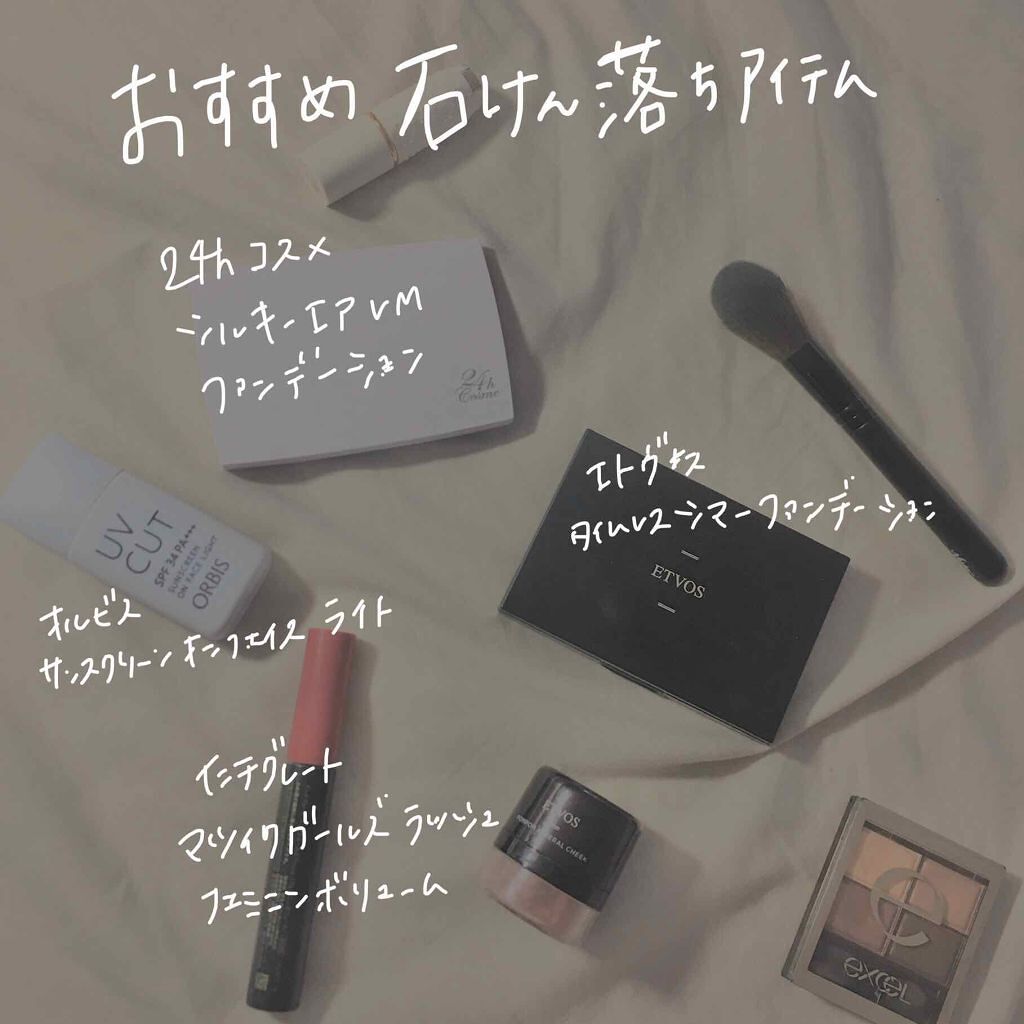 おすすめ 石けん落ちアイテム
24h コスメ
シルキーエア VM
ファンデーション
24h
Cosme
エトヴォス
タイムレスシマーファンデーション
ETVOS
UV
CUT
SPF 34 PA+++
SUNSCREEN
ON FACE LIGHT
ORBIS
オルビス
サンスクリーン オンフェイス ライト
インテグレート
マツイクガールズ ラッシュ
フェミニンボリューム
ETVOS
MINERAL CHEEK
e
excel